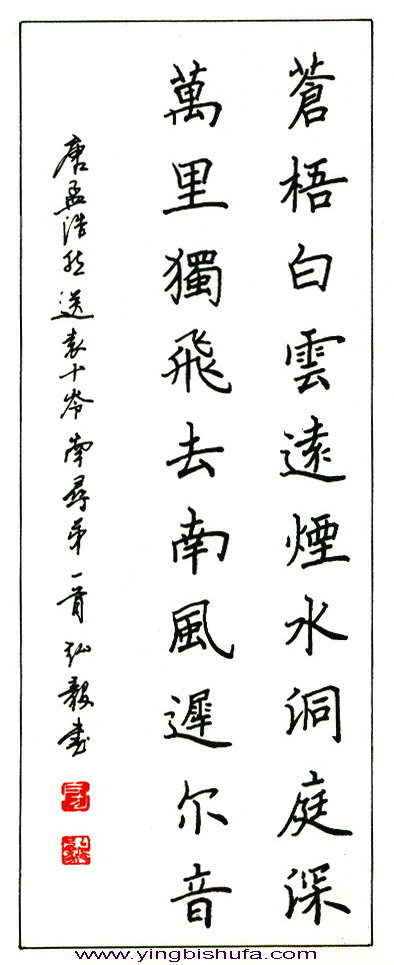 蒼梧白雲遠煙水洞庭深
萬里獨飛去南風遲尔音
唐孟浩然送袁十岺南尋弟一首弘毅书
www.yingbishufa.com